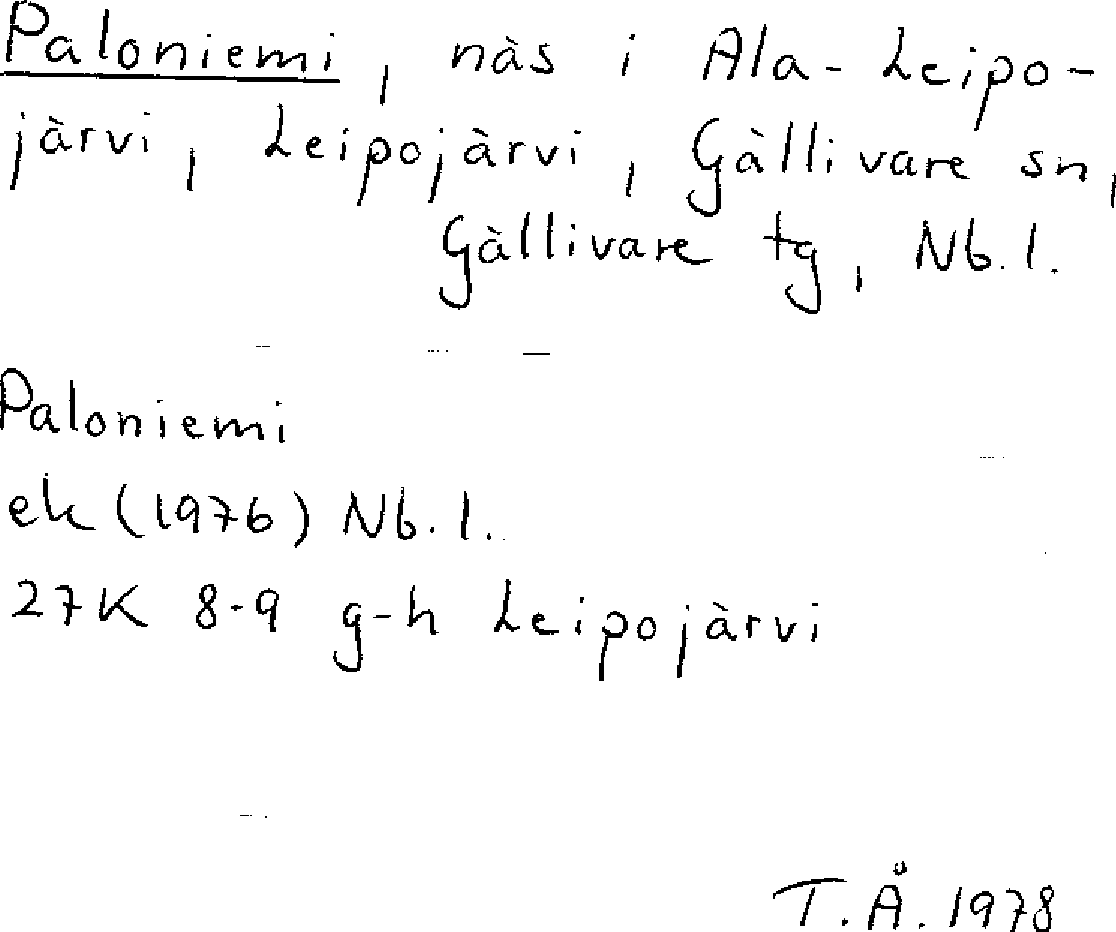 Paloniemi, näs i Ala-Leipo-
järvi, Leipojärvi, Gällivare sn,
Gällivare tg, Nb.l.
Paloniemi
ek (1976) Nb.l.
27K 8-9 g-h Leipojärvi
T.Å. 1978